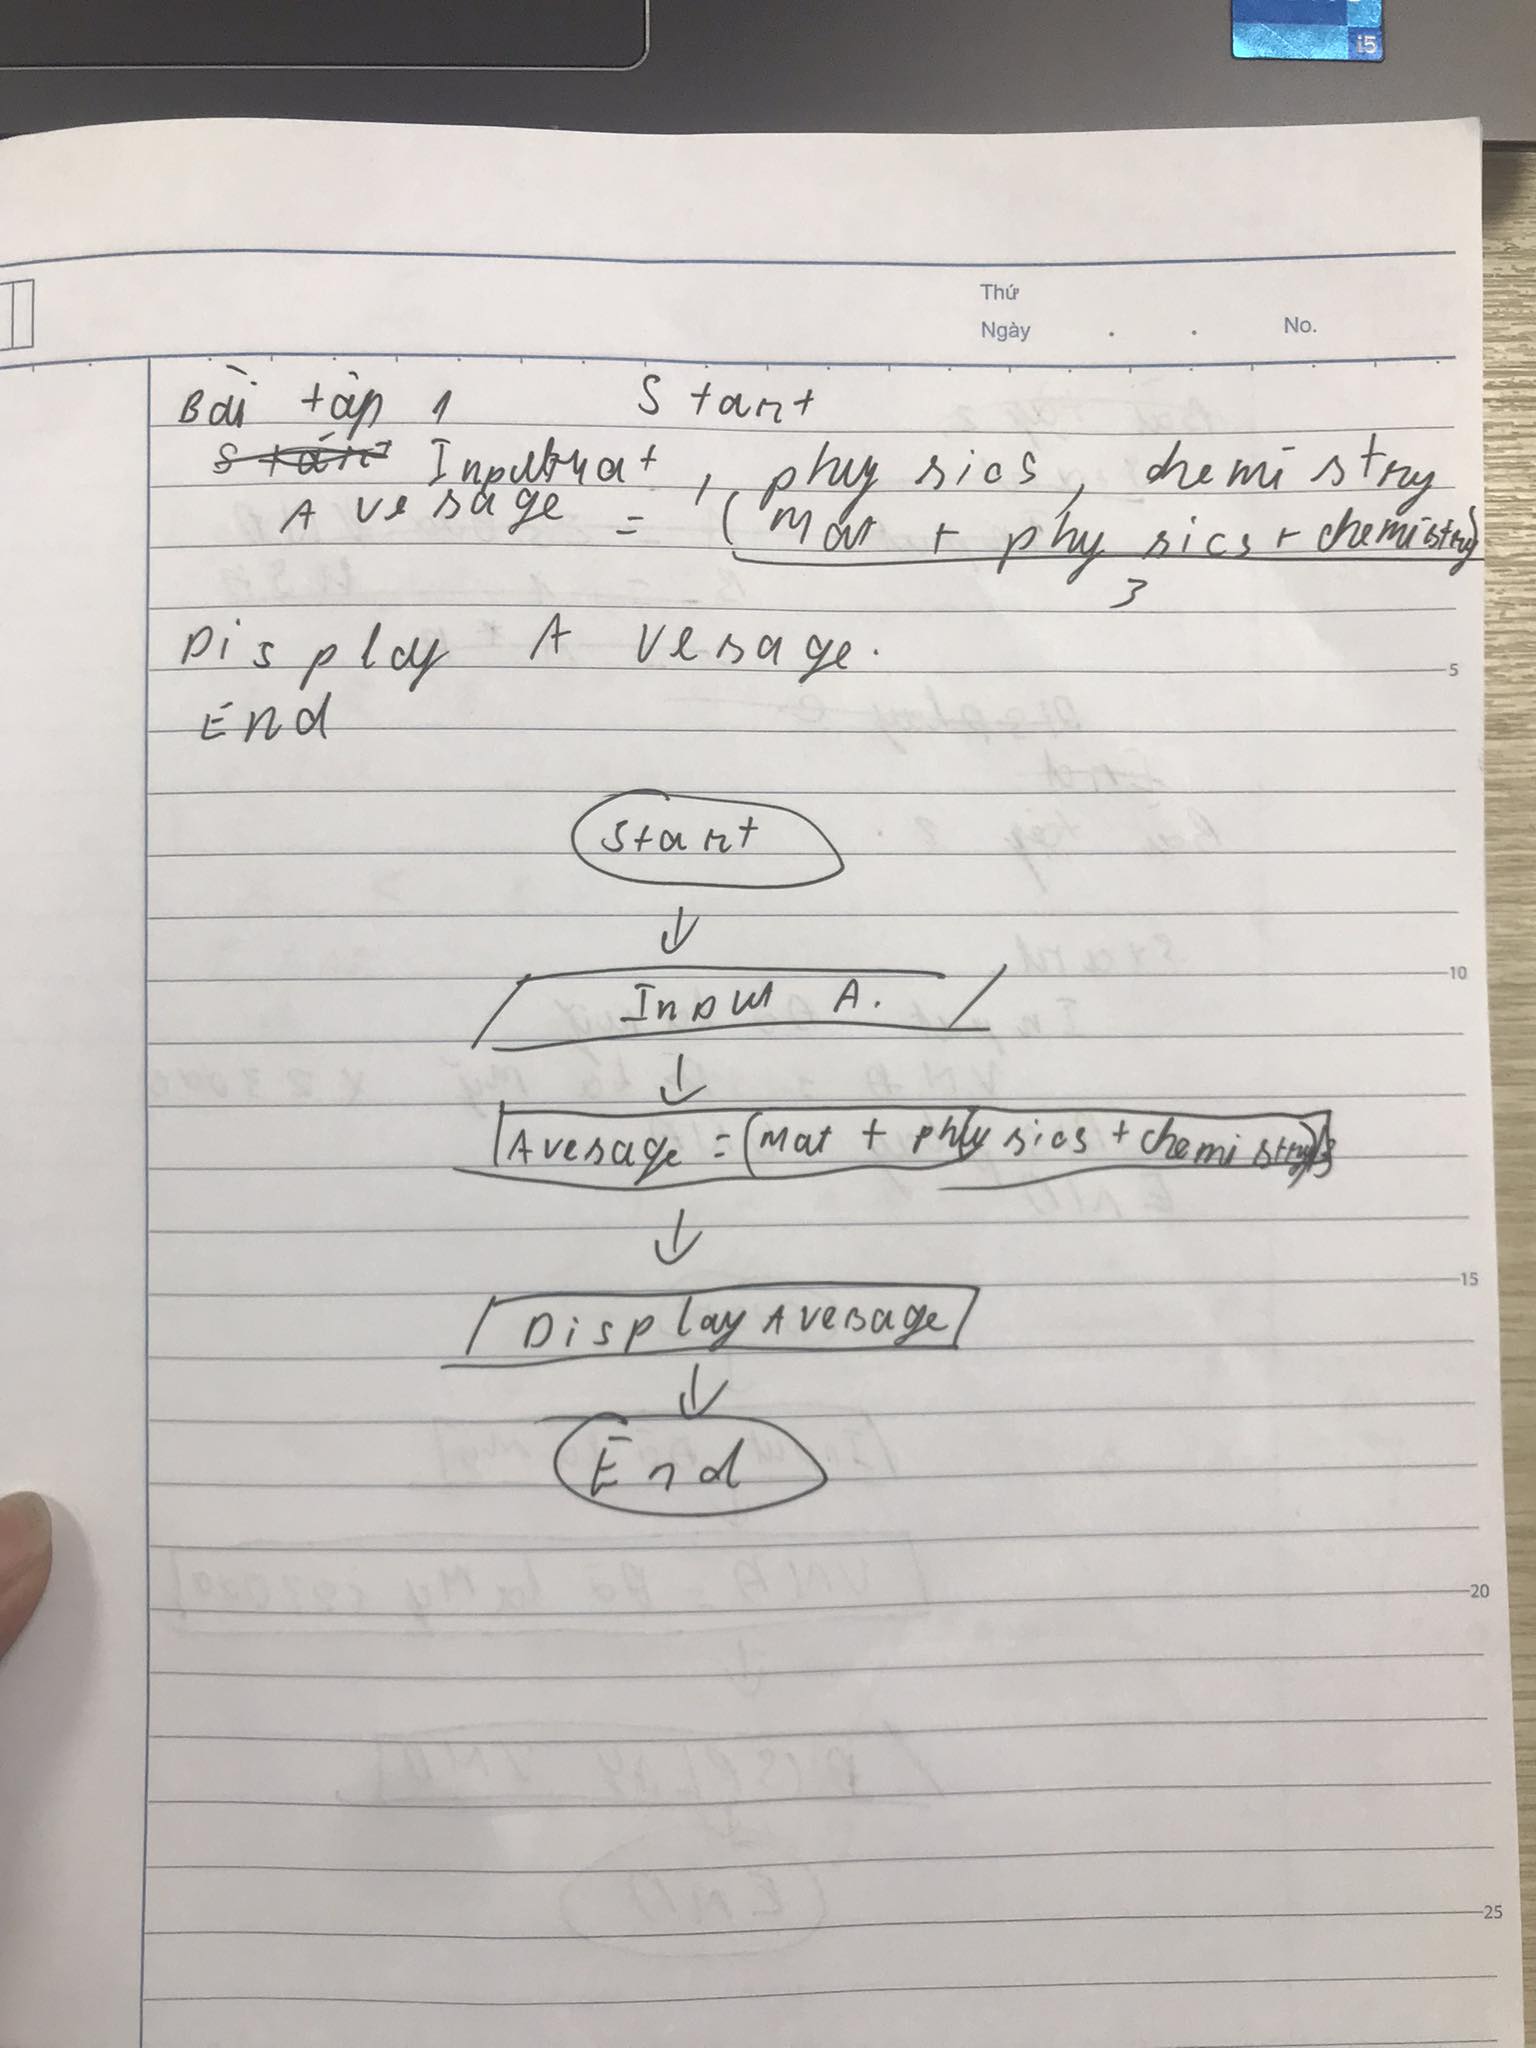 i5
Thứ
Ngày . . No.
Bài tập 1 Start
Input Mat, physics, chemistry
Average = (Mat + physics + chemistry)
3
Display Average.
5
End
Start
↓
10
Input A.
↓
Average = (Mat + physics + chemistry)/3
↓
15
Display Average
↓
End
20
25